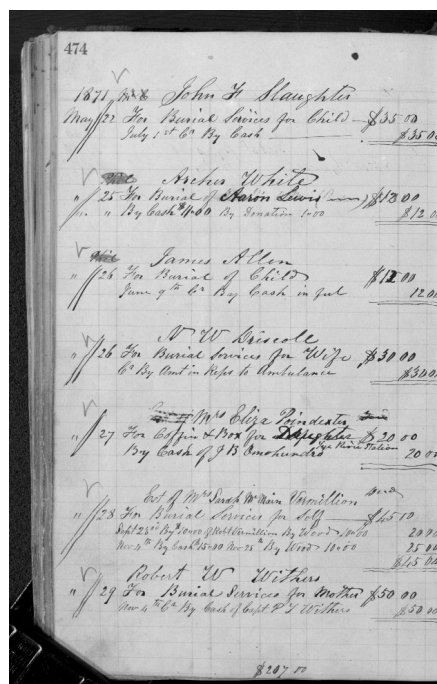 474
1871 John F Slaughter
May 22 For Burial Services for Child $35 00
July 1st Cr By Cash $35 00
Archer White
" 25 For Burial of Aaron Lewis $13 00
" " By Cash $11.00 By Donation 1.00 $12 0
James Allen
" 26 For Burial of Child $12 00
June 9th Cr By Cash in full 12 00
N W Driscoll
" 26 For Burial Services for Wife $30 00
Cr By Amt in Reps to Ambulance $30 00
Mrs Eliza Poindexter
" 27 For Coffin & Box for Daughter $20 00
By Cash of J B Omohundro 20 00
Est of Mrs Sarah Vermillion
" 28 For Burial Services for Self $45 00
Sept 23rd By $10.00 of Robt Vermillion By Wood 10.00 20 00
Nov 4th By Cash 15.00 Nov 25th By Wood 10.00 25 00
$45 00
Robert W Withers
" 29 For Burial Services for Mother $50 00
Nov 4th Cr By Cash of Capt P T Withers $50 00
$207 00